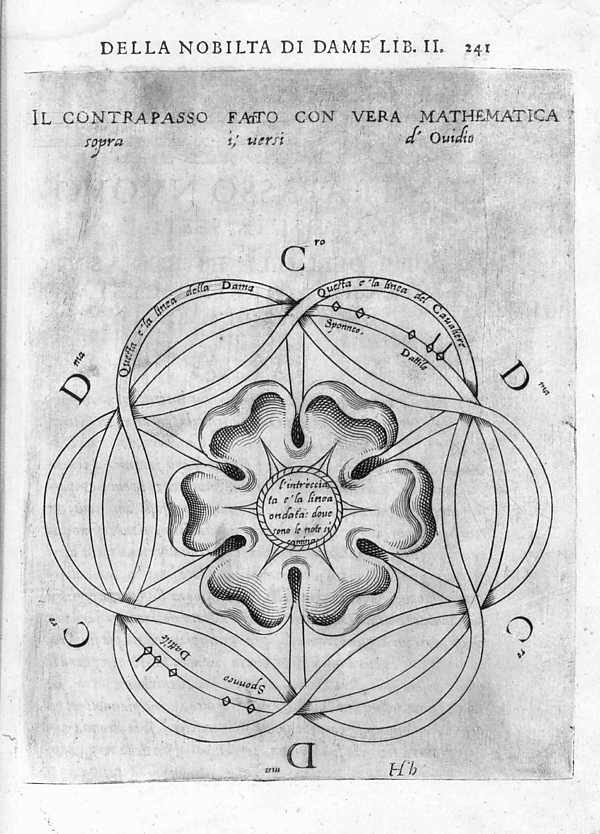 DELLA NOBILTA DI DAME LIB. II. 241
IL CONTRAPASSO FATTO CON VERA MATHEMATICA
sopra i; uersi d' Ouidio
C ro
Questa e' la linea della Dama
Questa e' la linea del Caualiere
Sponneo.
Dattilo
D ma
D ma
l'intreccia
ta e' la linea
ondata: doue
sono le note si
camina
C re
C re
Dattile
Sponneo
D ma
H b